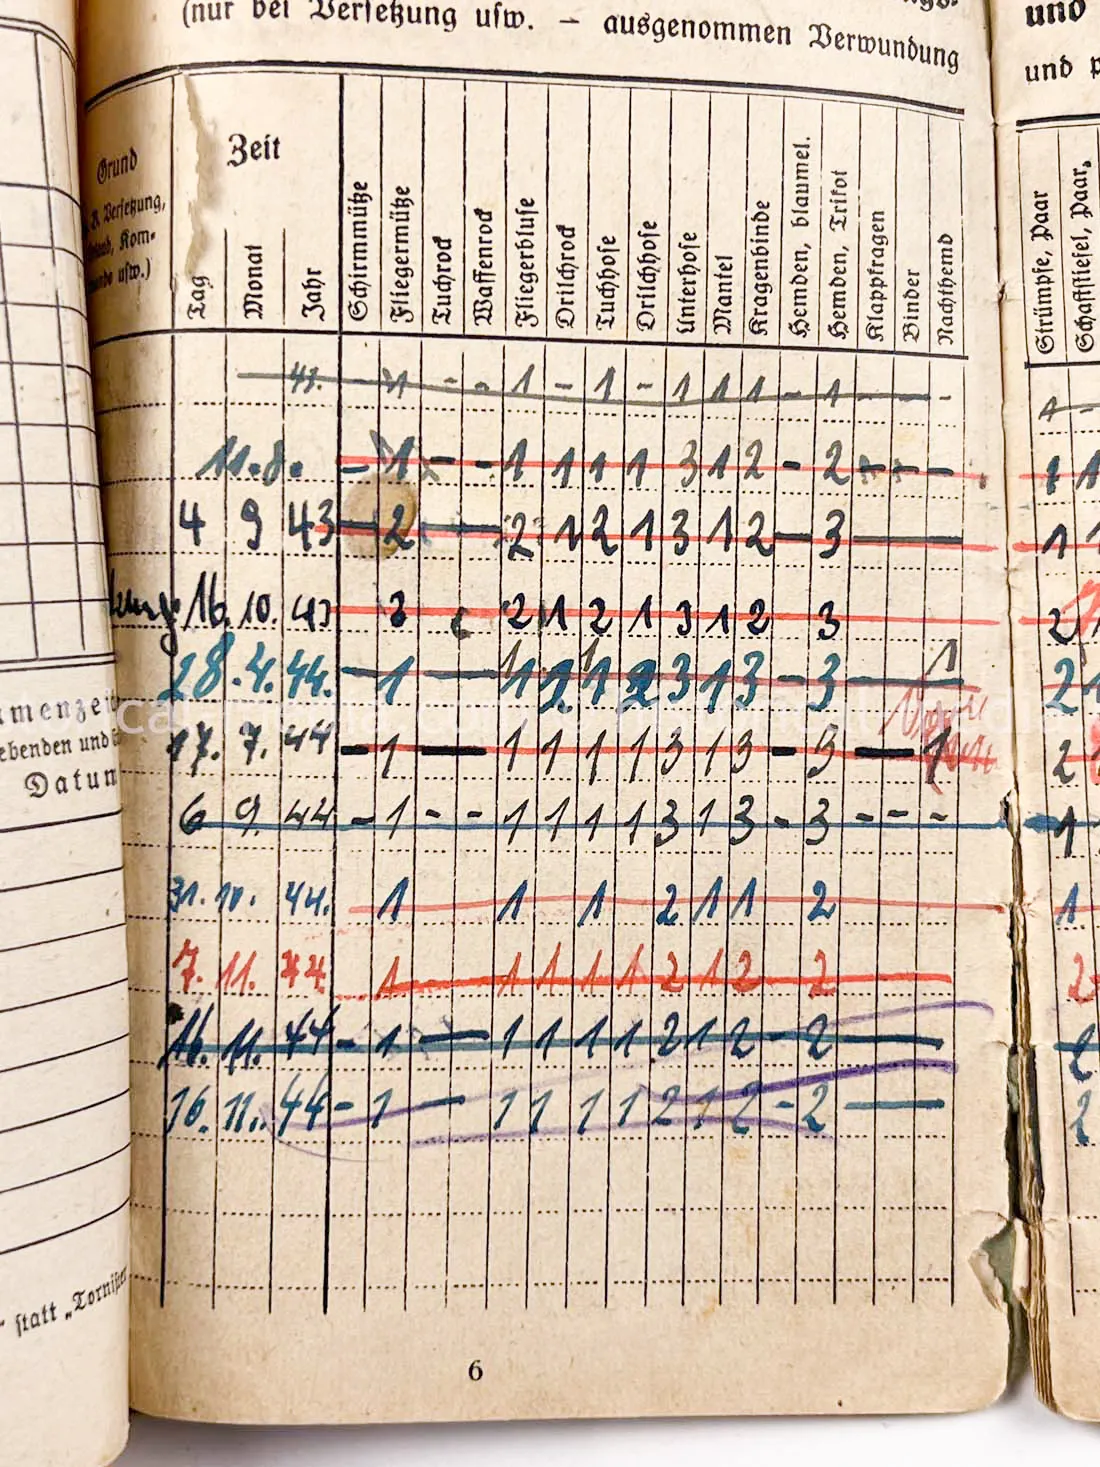 (nur bei Versetzung usw. — ausgenommen Verwundung
und
und
Grund
Zeit
Versetzung,
Kom-
usw.)
Tag
Monat
Jahr
Schirmmütze
Fliegermütze
Tuchrock
Waffenrock
Fliegerbluse
Drilchrock
Tuchhose
Drilchhose
Unterhose
Mantel
Kragenbinde
Hemden, blaumel.
Hemden, Trikot
Klappkragen
Binder
Nachthemd
Strümpfe, Paar
Schaftstiefel, Paar,
1 - - 1 - 1 - 1 1 1 - 1 - 1
11. 8. - 1 - - 1 1 1 1 3 1 2 - 2 - - - 1 1
4 9 43 - 2 - 2 1 2 1 3 1 2 - 3 - 1 1
16. 10. 43 3 2 1 2 1 3 1 2 3 2
28. 4. 44. - 1 - 1 2 1 2 3 1 3 - 3 - 1 2 1
17. 7. 44 - 1 - 1 1 1 1 3 1 3 - 3 - 1 2
6 9. 44 - 1 - - 1 1 1 1 3 1 3 - 3 - - - 1
31. 10. 44. 1 1 1 2 1 1 2 1
7. 11. 44. 1 - 1 1 1 1 2 1 2 2 - 2
16. 11. 44 - 1 - 1 1 1 1 2 1 2 - 2 - 2
16. 11. 44 - 1 - 1 1 1 1 2 1 2 - 2 - 2
Datum
statt „Tornister
6